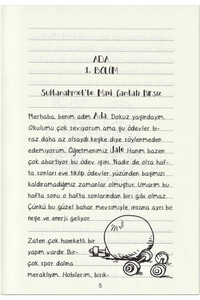 ADA
1. BÖLÜM
Sultanahmet'te Mavi Çantalı Hırsız
Merhaba, benim adım Ada. Dokuz yaşındayım.
Okulumu çok seviyorum ama şu ödevler bi-
raz daha az olsaydı keşke diye söylenmeden
edemiyorum. Öğretmenimiz Jale Hanım bazen
çok abartıyor bu ödev işini. Nadir de olsa haf-
ta sonları eve tıkılıp ödevler yüzünden başımızı
kaldıramadığımız zamanlar olmuştur. Umarım bu
hafta sonu o hafta sonlarından biri gibi olmaz.
Çünkü bu güzel bahar mevsimiyle insana ayrı bir
neşe ve enerji geliyor.
Zaten çok hareketli bir
yapım vardır. Bir-
çok spor dalına
meraklıyım. Hobilerim, bisik-
5